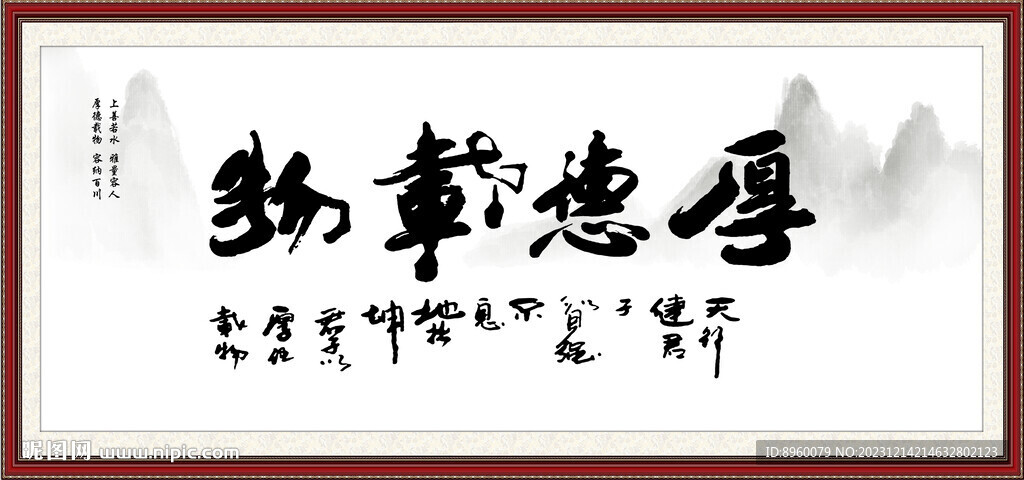 厚德載物
天行
健君
子
以自强
不
息
地势
坤
君子以
厚德
載物
上善若水 雅量容人
厚德载物 容纳百川
昵图网 www.nipic.com
ID:8960079 NO:20231214214632802123